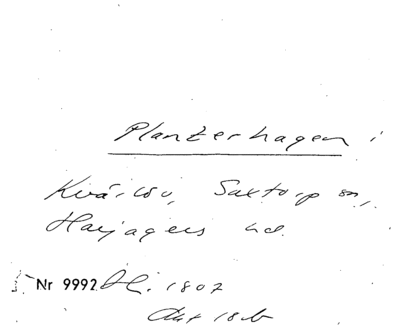 Planterhagen i
Kvärlöv, Saxtorp sn,
Harjagers hd.
Nr 9992 1807
Akt 18b